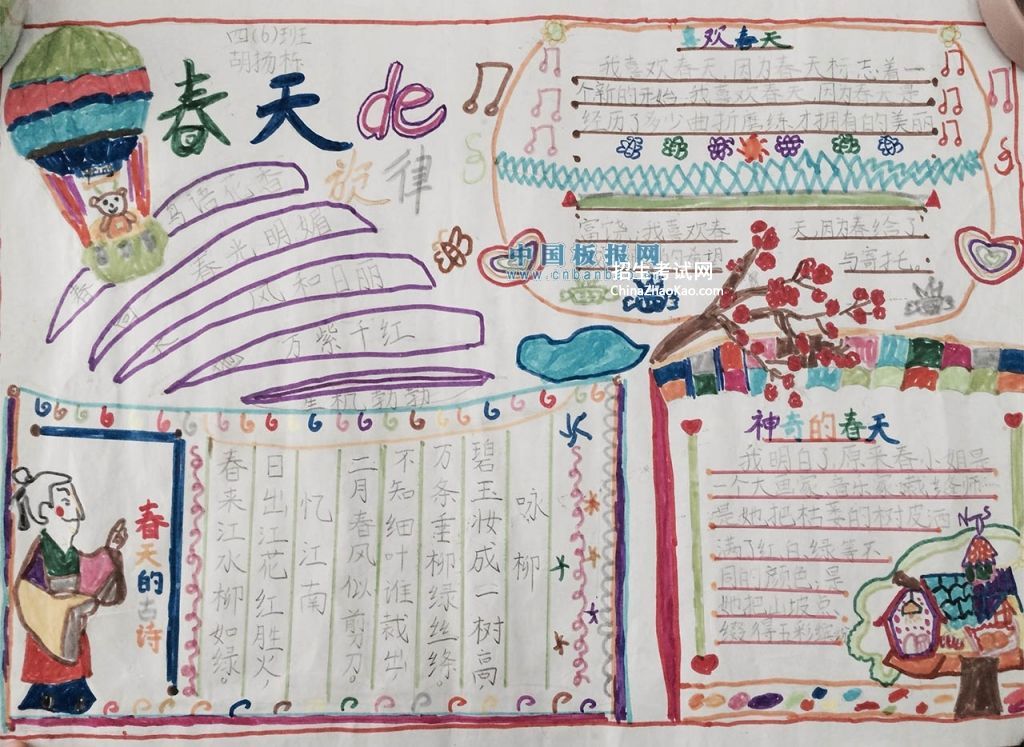 四(6)班
胡扬栎
春天de
旋律
鸟语花香
春光明媚
风和日丽
万紫千红
生机勃勃
喜欢春天
我喜欢春天,因为春天标志着一
个新的开始,我喜欢春天,因为春天是
经历了多少曲折磨练才拥有的美丽
富饶,我喜欢春天,因为春给了
与寄托。
中国板报网
www.cnbanb
招生考试网
ChinaZhaoKao.com
春天的古诗
咏柳
碧玉妆成一树高,
万条垂柳绿丝绦。
不知细叶谁裁出,
二月春风似剪刀。
忆江南
日出江花红胜火,
春来江水柳如绿。
神奇的春天
我明白了原来春小姐是
一个大画家、音乐家、裁缝师…
是她把枯萎的树皮洒
满了红、白、绿等不
同的颜色,是
她把山坡点
缀得五彩缤
N
S